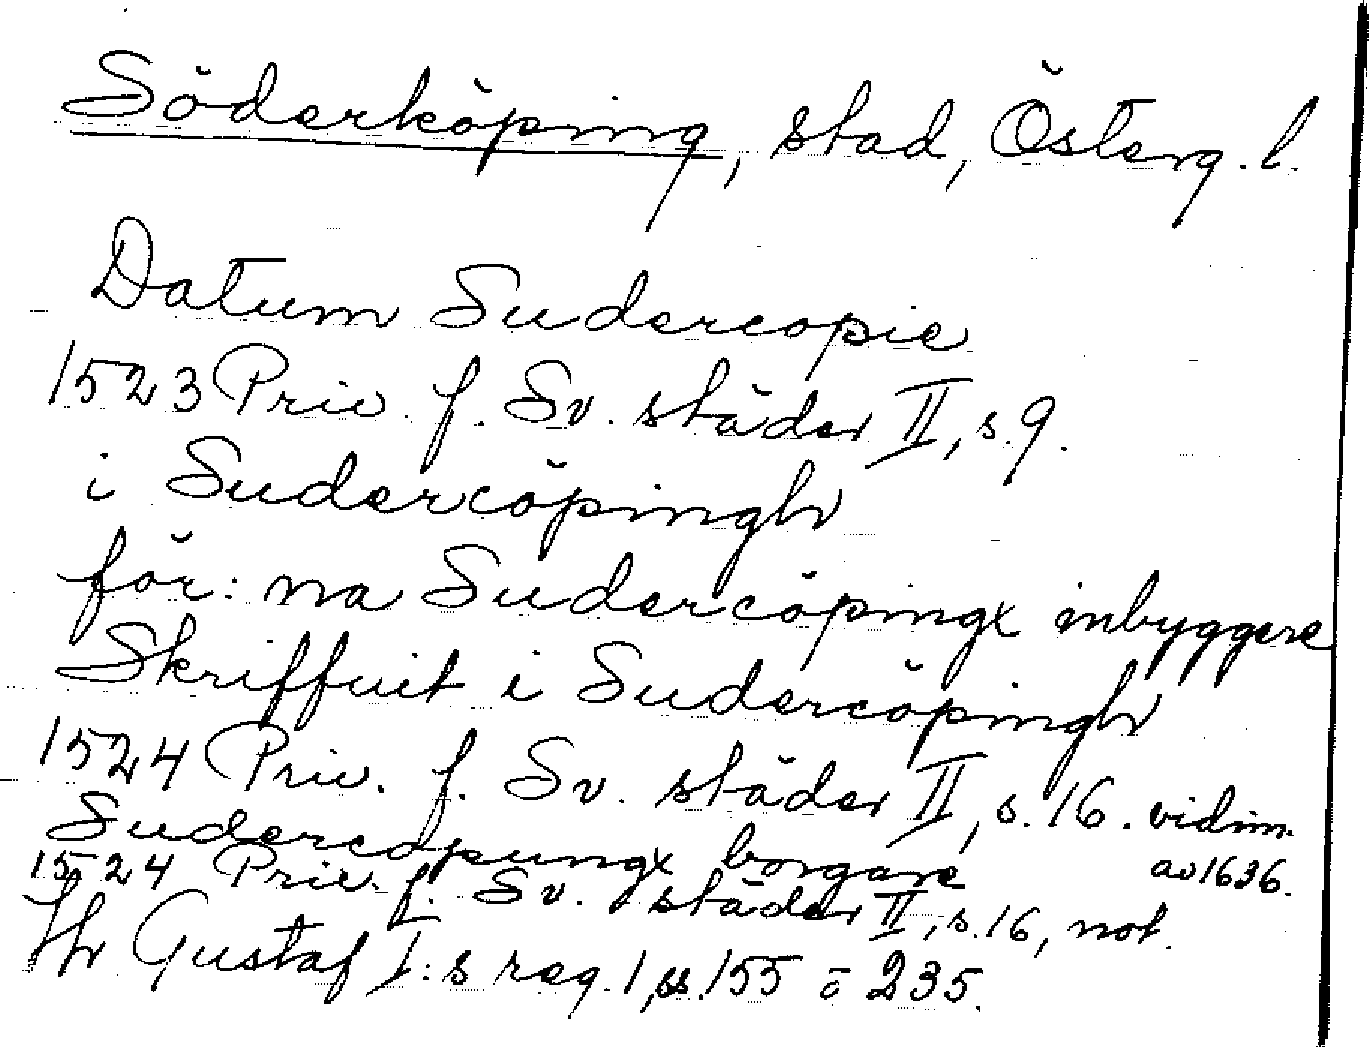 Söderköping, stad, Österg. l.
Datum Sudercopie
1523 Priv. f. Sv. städer II, s. 9.
i Sudercöpingh
för: na Sudercöpingx inbyggere
Skriffuit i Sudercöpingh
1524 Priv. f. Sv. städer II, s. 16. vidim. av 1636.
Sudercøpungx borgare
1524 Priv. f. Sv. städer II, s. 16, not.
Jfr Gustaf I:s reg. 1, ss. 155 o 235.